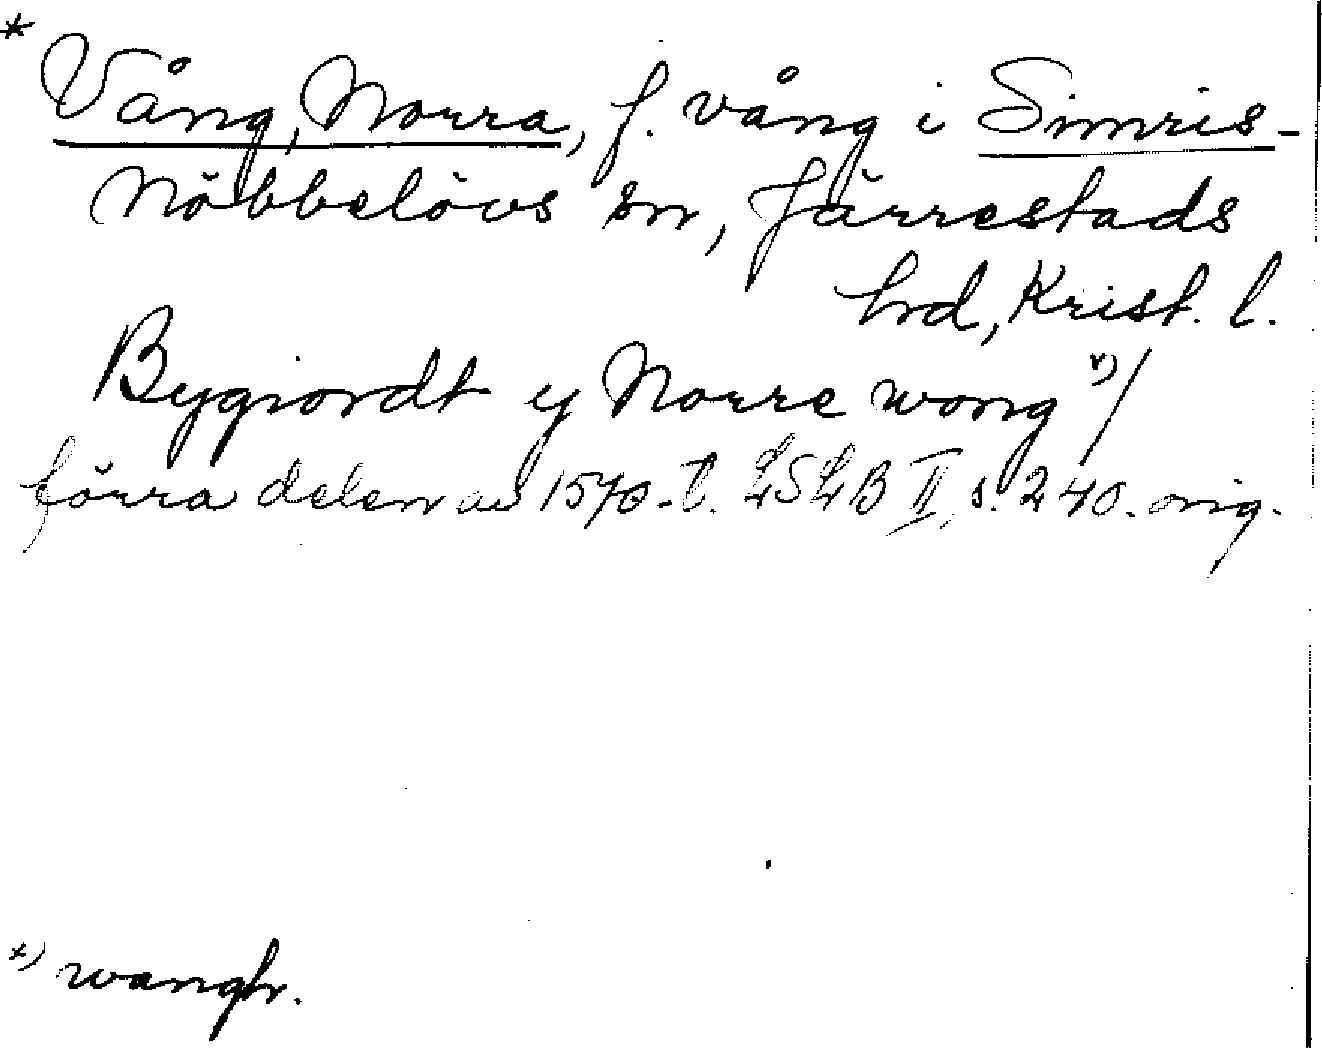 * Vång, Norra, f. vång i Simris-
Nöbbelövs sn, Järrestads
hd, Krist. l.
Bygiordt y Norre wong x) /
förra delen av 1570-t. LSLB II, s. 240. orig.
x) wangh.